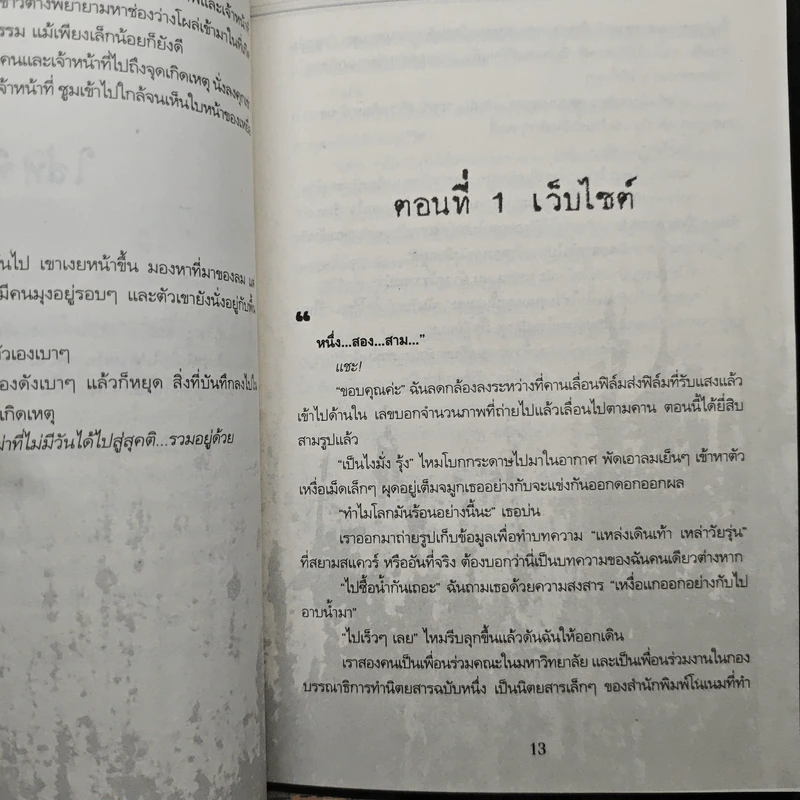 ข่าวต่างพยายามหาช่องว่างโผล่เข้ามาในที่เกิด
รรม แม้เพียงเล็กน้อยก็ยังดี
คนและเจ้าหน้าที่ไปถึงจุดเกิดเหตุ นั่งลงคุกเข่า
จ้าหน้าที่ ซูมเข้าไปใกล้จนเห็นใบหน้าของเหยื่อ
ันไป เขาเงยหน้าขึ้น มองหาที่มาของลม แต่
มีคนมุงอยู่รอบๆ และตัวเขายังนั่งอยู่กับพื้น
ัวเองเบาๆ
องดังเบาๆ แล้วก็หยุด สิ่งที่บันทึกลงไปใน
เกิดเหตุ
ม่าที่ไม่มีวันได้ไปสู่สุคติ...รวมอยู่ด้วย
ตอนที่ 1 เว็บไซต์
“
หนึ่ง...สอง...สาม...”
แชะ!
“ขอบคุณค่ะ” ฉันลดกล้องลงระหว่างที่คานเลื่อนฟิล์มส่งฟิล์มที่รับแสงแล้ว
เข้าไปด้านใน เลขบอกจำนวนภาพที่ถ่ายไปแล้วเลื่อนไปตามคาน ตอนนี้ได้ยี่สิบ
สามรูปแล้ว
“เป็นไงมั่ง รุ้ง” ไหมโบกกระดาษไปมาในอากาศ พัดเอาลมเย็นๆ เข้าหาตัว
เหงื่อเม็ดเล็กๆ ผุดอยู่เต็มจมูกเธออย่างกับจะแข่งกันออกดอกออกผล
“ทำไมโลกมันร้อนอย่างนี้นะ” เธอบ่น
เราออกมาถ่ายรูปเก็บข้อมูลเพื่อทำบทความ “แหล่งเดินเท้า เหล่าวัยรุ่น”
ที่สยามสแควร์ หรืออันที่จริง ต้องบอกว่านี่เป็นบทความของฉันคนเดียวต่างหาก
“ไปซื้อน้ำกันเถอะ” ฉันถามเธอด้วยความสงสาร “เหงื่อแกออกอย่างกับไป
อาบน้ำมา”
“ไปเร็วๆ เลย” ไหมรีบลุกขึ้นแล้วดันฉันให้ออกเดิน
เราสองคนเป็นเพื่อนร่วมคณะในมหาวิทยาลัย และเป็นเพื่อนร่วมงานในกอง
บรรณาธิการทำนิตยสารฉบับหนึ่ง เป็นนิตยสารเล็กๆ ของสำนักพิมพ์โนเนมที่ทำ
13